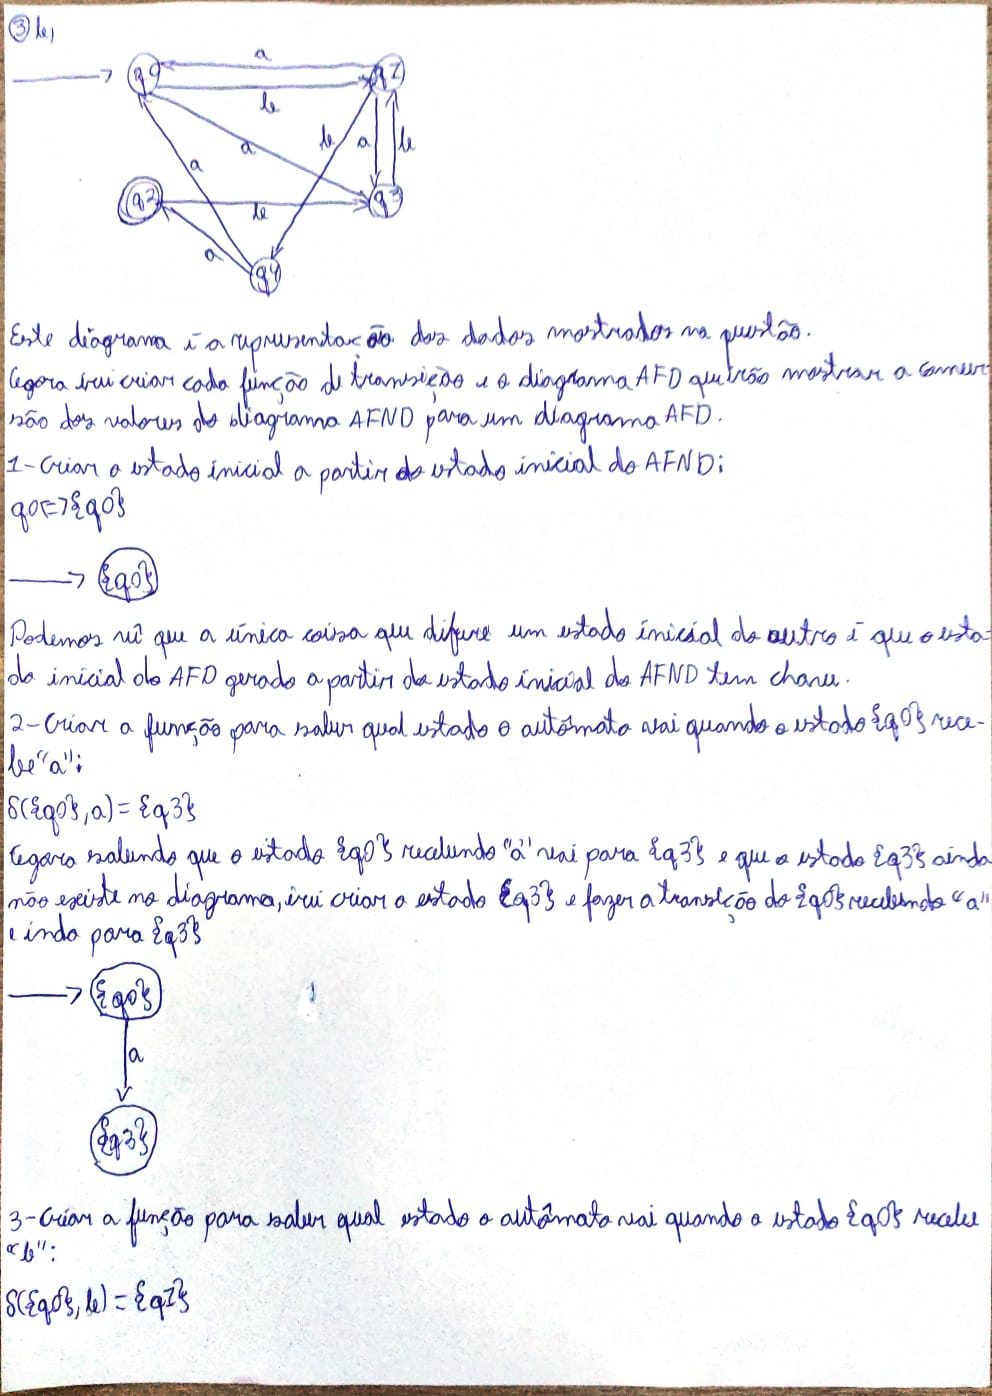 ③ b)
a
q0 q1
b
b a b
a
a
q2 q3
b
a
q4
Este diagrama é a representação dos dados mostrados na questão.
Agora irei criar cada função de transição e o diagrama AFD que irão mostrar a conver-
são dos valores do diagrama AFND para um diagrama AFD.
1-Criar o estado inicial a partir do estado inicial do AFND:
q0=>{q0}
{q0}
Podemos vê que a única coisa que difere um estado inicial do outro é que o esta-
do inicial do AFD gerado a partir do estado inicial do AFND tem chave.
2-Criar a função para saber qual estado o autômato vai quando o estado {q0} rece-
be "a":
δ({q0},a)={q3}
Agora sabendo que o estado {q0} recebendo "a" vai para {q3} e que o estado {q3} ainda
não existe no diagrama, irei criar o estado {q3} e fazer a transição do {q0} recebendo "a"
e indo para {q3}
{q0}
a
{q3}
3-Criar a função para saber qual estado o autômato vai quando o estado {q0} recebe
"b":
δ({q0},b)={q1}